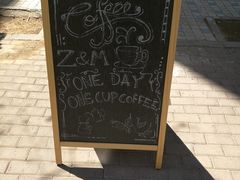 Coffee
Bar
Z&M
ONE DAY
ONE CUP COFFEE